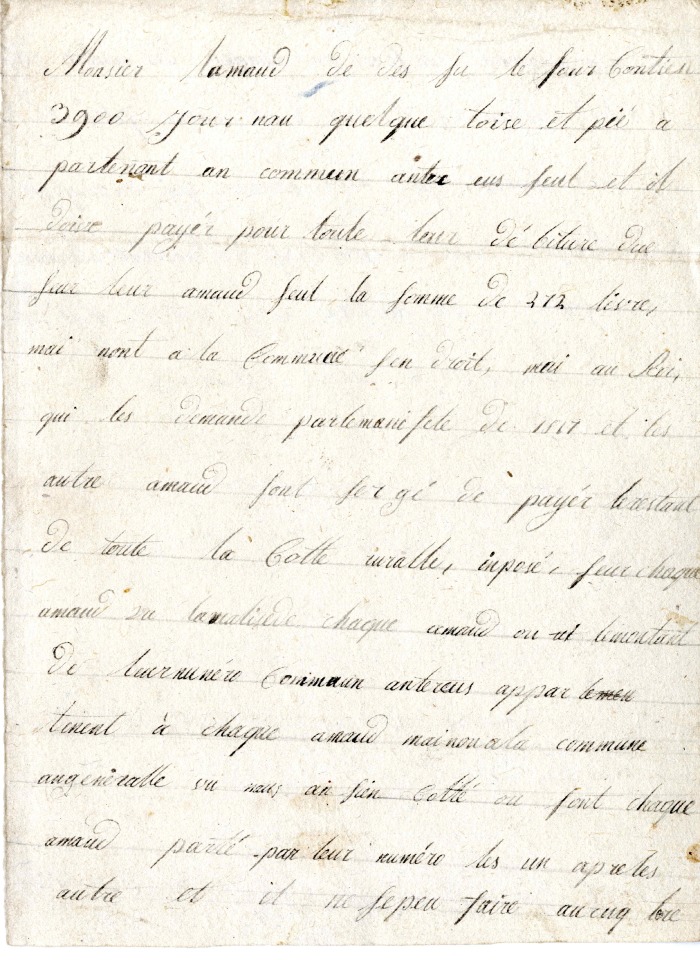 Monsier lamaud de des su le four Contien
3900 Journau quelque toise et pié a
partenant an commun antre eus seul et il
doive payér pour toute leur dé biture due
sur leur amaud seul la somme de 272 livre,
mai nont a la Commune sen droit, mai au Roi,
qui les demande par lemanifeste de et les
autre amaud sont sergé de payér lerestant
de toute la Cotte ruralle, inposé, sur chaque
amaud vu chaque amaud ou lemontant
de leurnuméro Commun antereus appar
tinent à chaque amaud mainonala commune
angéneralle vu nous an sien Cotté ou sont chaque
amaud parté par leur numéro les un apreles
autre et il ne sepeu faire aucuq